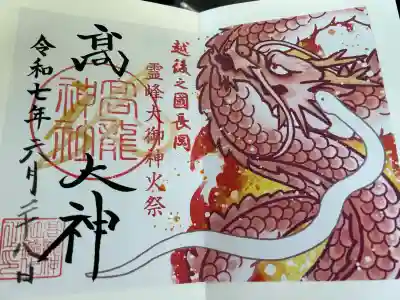 越後之國長岡
霊峰大御神火祭
高龍大神
高龍神社
令和七年六月二十八日